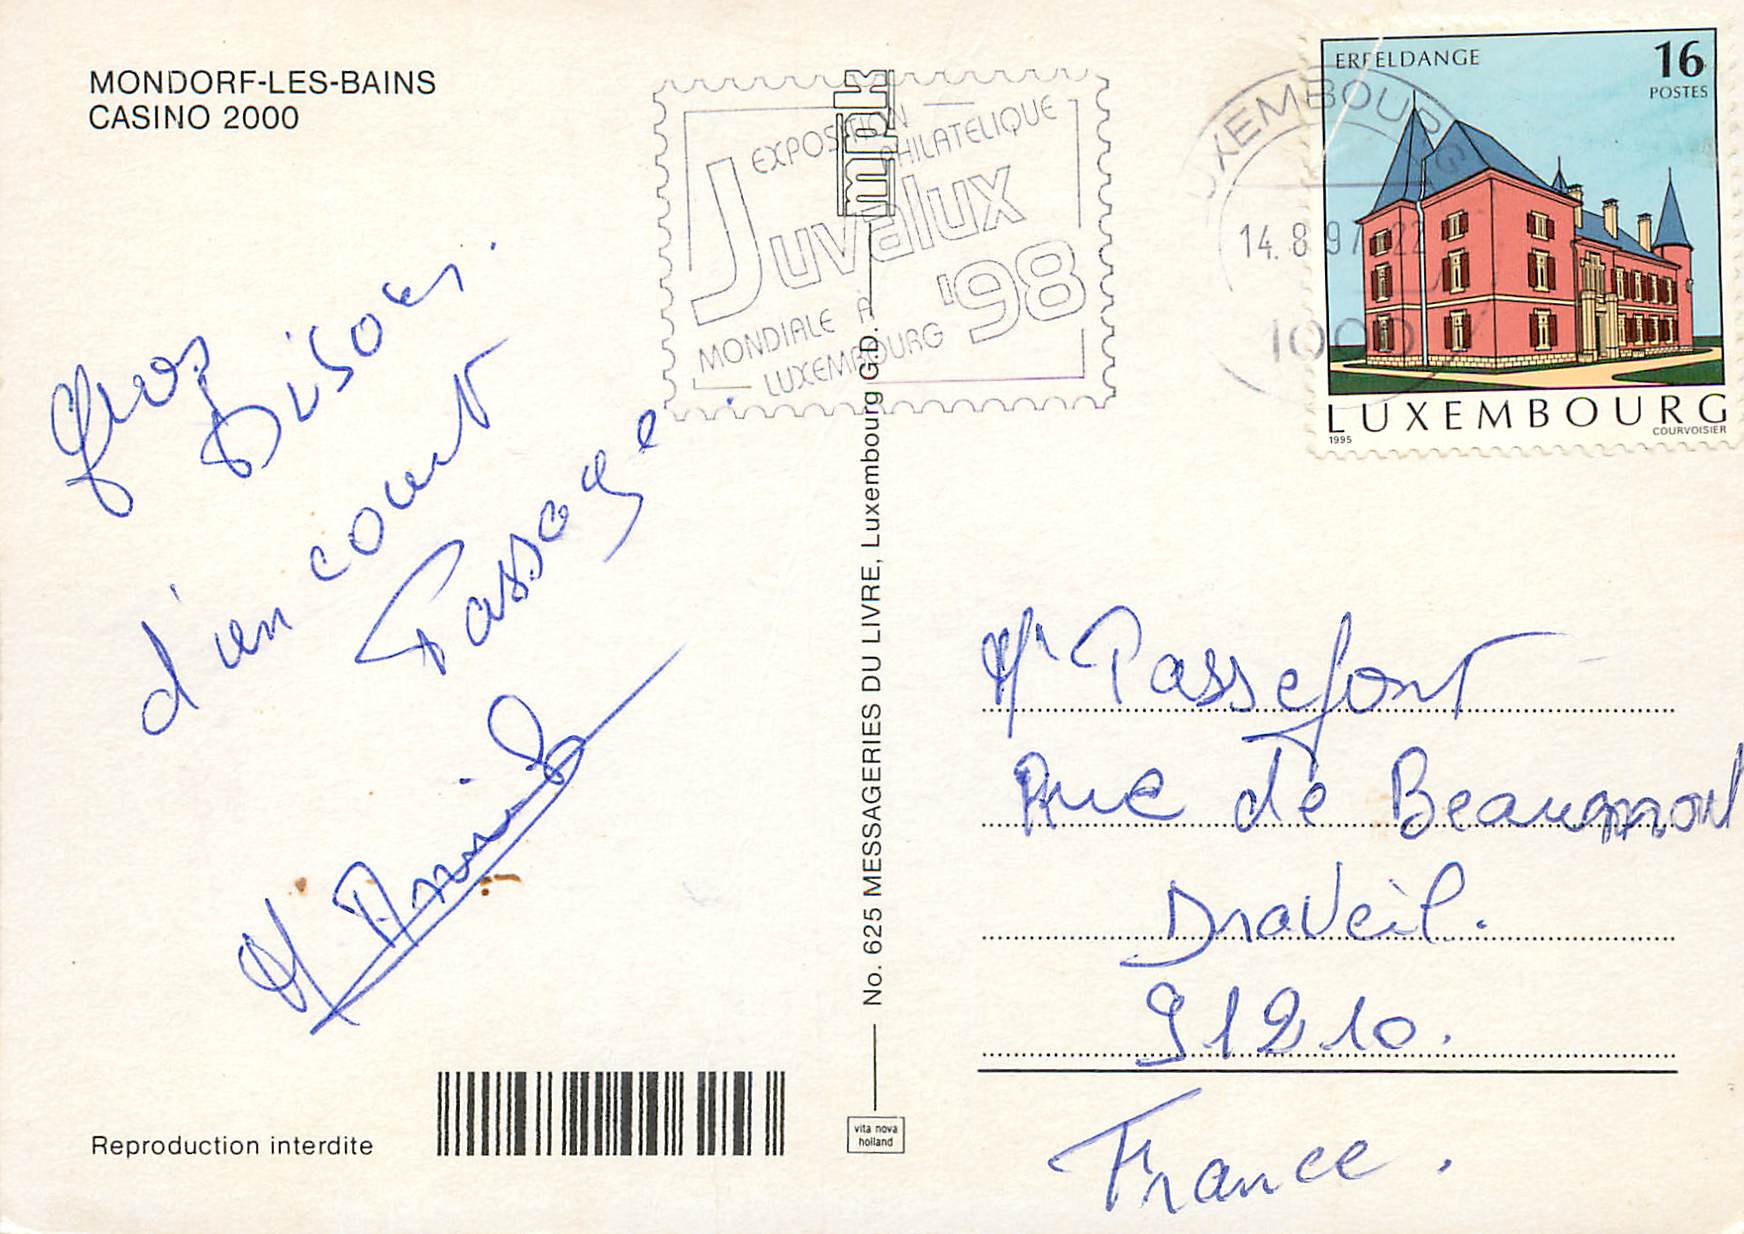 MONDORF-LES-BAINS
CASINO 2000
Gros Bisous
d'un court
Passage
Reproduction interdite
EXPOSITION
PHILATELIQUE
Juvalux
'98
MONDIALE A
LUXEMBOURG
mplk
No. 625 MESSAGERIES DU LIVRE, Luxembourg G.D.
vita nova
holland
LUXEMBOURG
14.8.97 22
1000
ERPELDANGE
16
POSTES
LUXEMBOURG
1995
COURVOISIER
Mr Passefont
Rue de Beaumont
Draveil.
91210.
France.